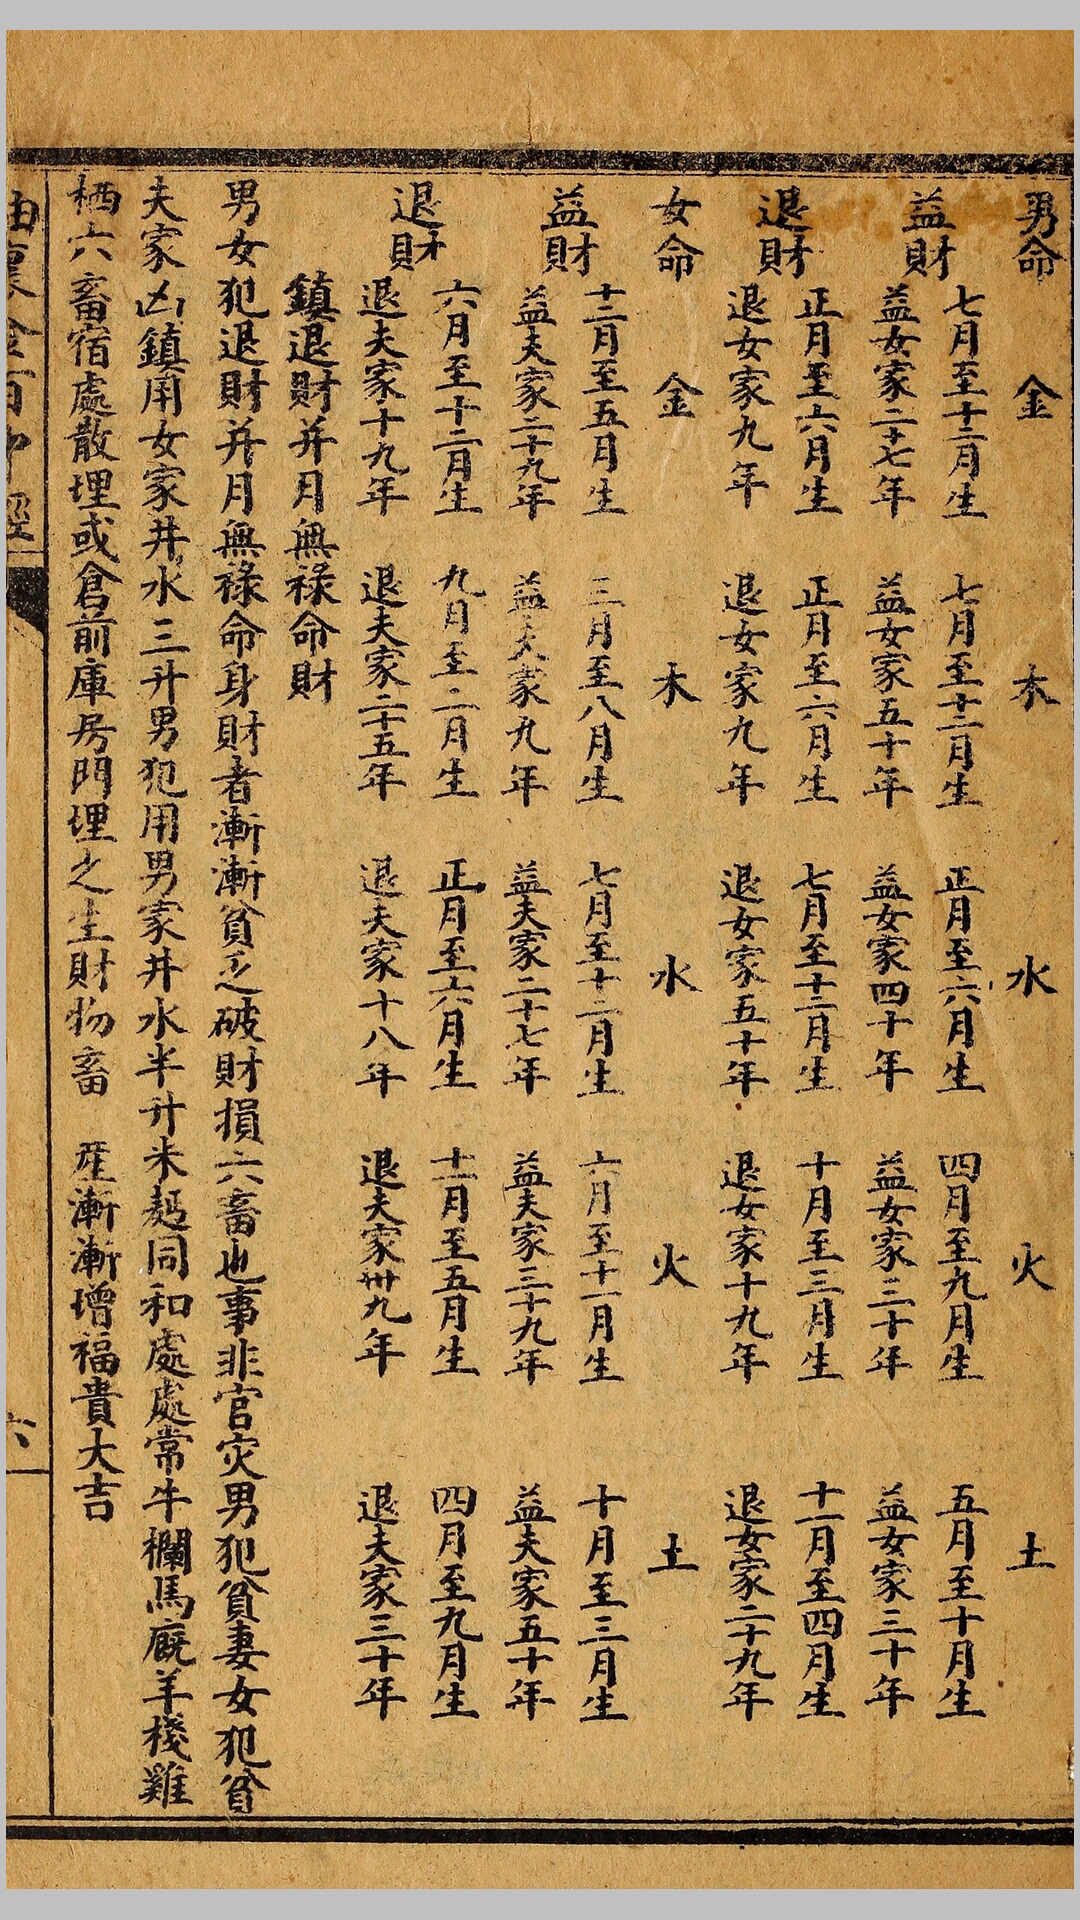 男命 金 木 水 火 土
益財 七月至十二月生 七月至十二月生 正月至六月生 四月至九月生 五月至十月生
益女家二十七年 益女家五十年 益女家四十年 益女家三十年 益女家三十年
退財 正月至六月生 正月至六月生 七月至十二月生 十月至三月生 十一月至四月生
退女家九年 退女家九年 退女家五十年 退女家十九年 退女家二十九年
女命 金 木 水 火 土
益財 十二月至五月生 三月至八月生 七月至十二月生 六月至十一月生 十月至三月生
益夫家二十九年 益夫家九年 益夫家二十七年 益夫家三十九年 益夫家五十年
退財 六月至十二月生 九月至二月生 正月至六月生 十二月至五月生 四月至九月生
退夫家十九年 退夫家二十五年 退夫家十八年 退夫家卅九年 退夫家三十年
鎮退財并月無祿命財
男女犯退財并月無祿命身財者漸漸貧乏破財損六畜也事非官灾男犯貧妻女犯貧
夫家凶鎮用女家井水三升男犯用男家井水半升米麪同和處處常牛欄馬廐羊棧雞
栖六畜宿處散埋或倉前庫房門埋之生財物畜 產漸漸增福貴大吉
六